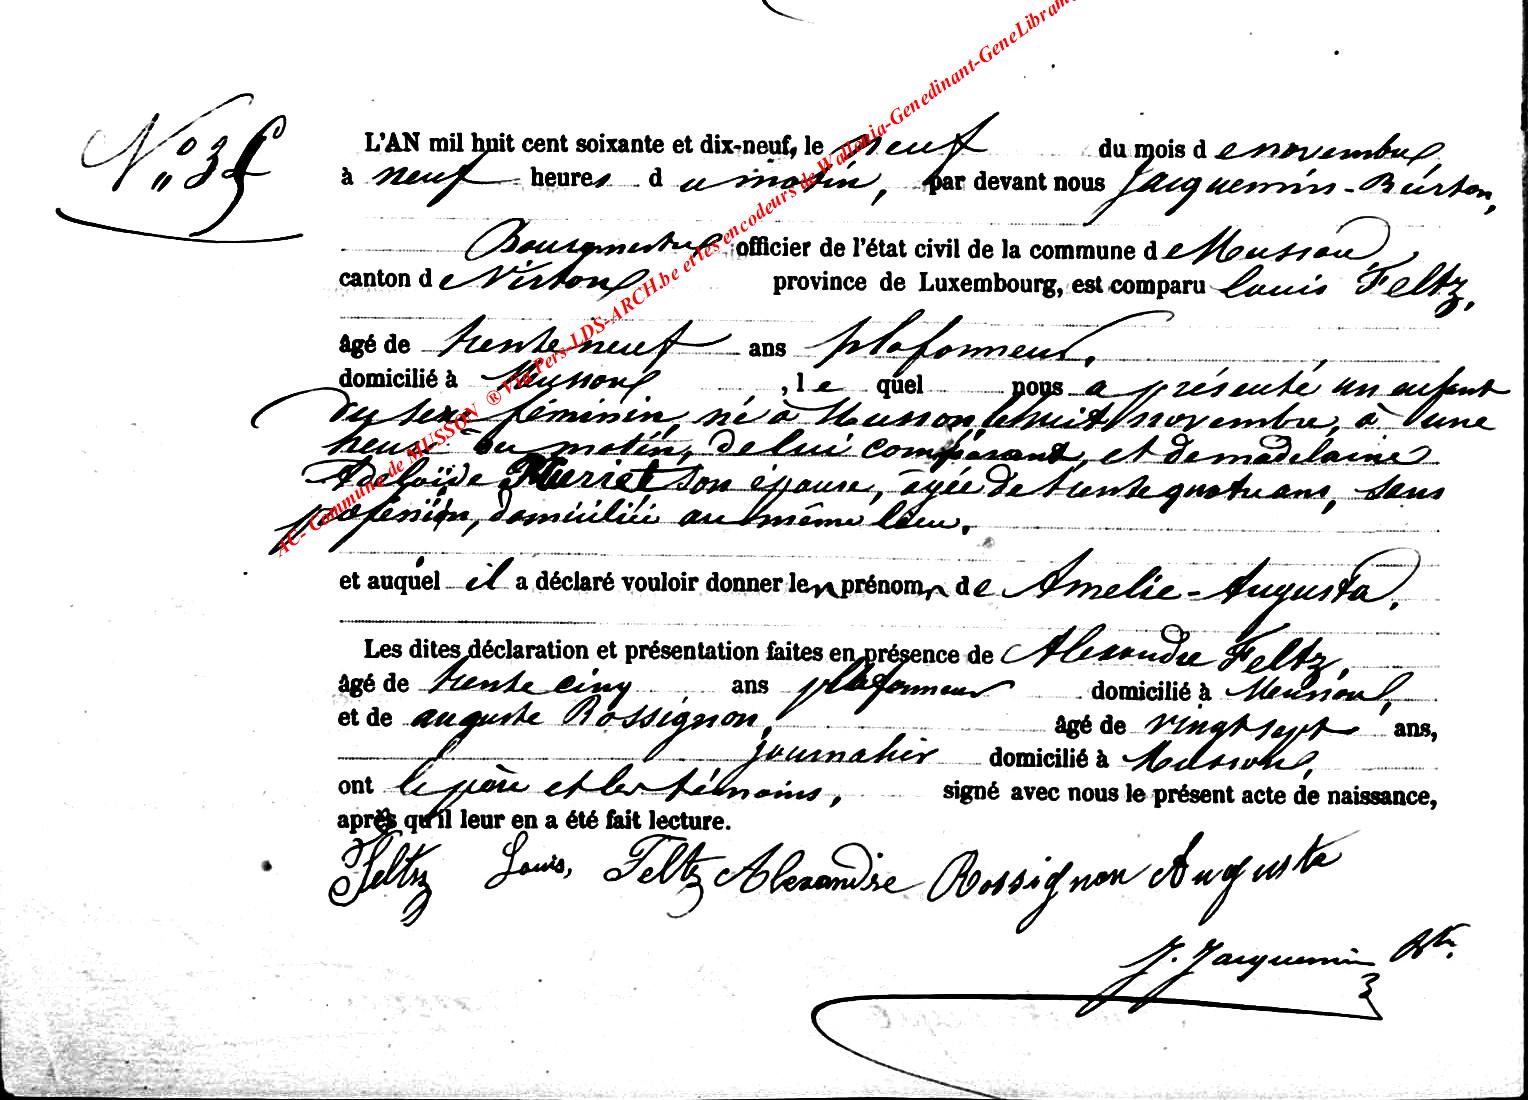 N° 35
L'AN mil huit cent soixante et dix-neuf, le neuf du mois de novembre,
à neuf heures du matin, par devant nous Jacquemin-Burton,
Bourgmestre officier de l'état civil de la commune de Musson,
canton de Virton province de Luxembourg, est comparu Louis Feltz,
âgé de trente neuf ans plafonneur,
domicilié à Musson, lequel nous a présenté un enfant
du sexe féminin, né à Musson, le huit novembre, à une
heure du matin, de lui comparant, et de madelaine
Adelaïde son épouse, âgée de trente quatre ans, sans
profession, domiciliée au même lieu.
et auquel il a déclaré vouloir donner les prénoms de Amelie-Augusta.
Les dites déclaration et présentation faites en présence de Alexandre Feltz,
âgé de trente cinq ans plafonneur domicilié à Musson,
et de auguste Rossignon, âgé de vingt sept ans,
journalier domicilié à Musson,
ont le père et les témoins, signé avec nous le présent acte de naissance,
après qu'il leur en a été fait lecture.
Feltz Louis, Feltz Alexandre Rossignon Auguste
J. Jacquemin Btn.
AC- Commune de MUSSON ® Via Pers-LDS-ARCH.be et les encodeurs de Wallonia-Genedinant-GeneLibram